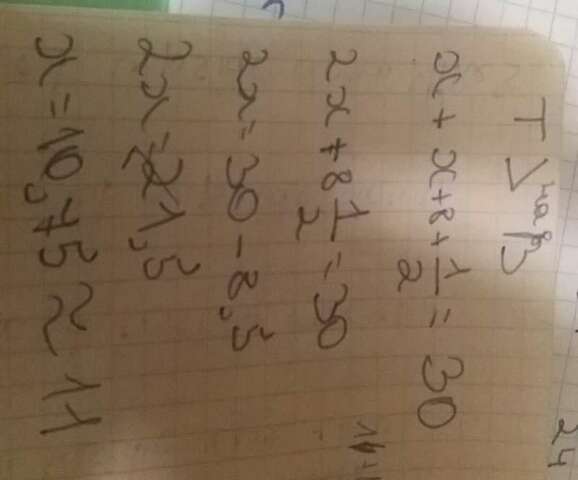 x + x + 8 + 1/2 = 30
2x + 8 1/2 = 30
2x = 30 - 8,5
2x = 21,5
x = 10,75 ≈ 11
24